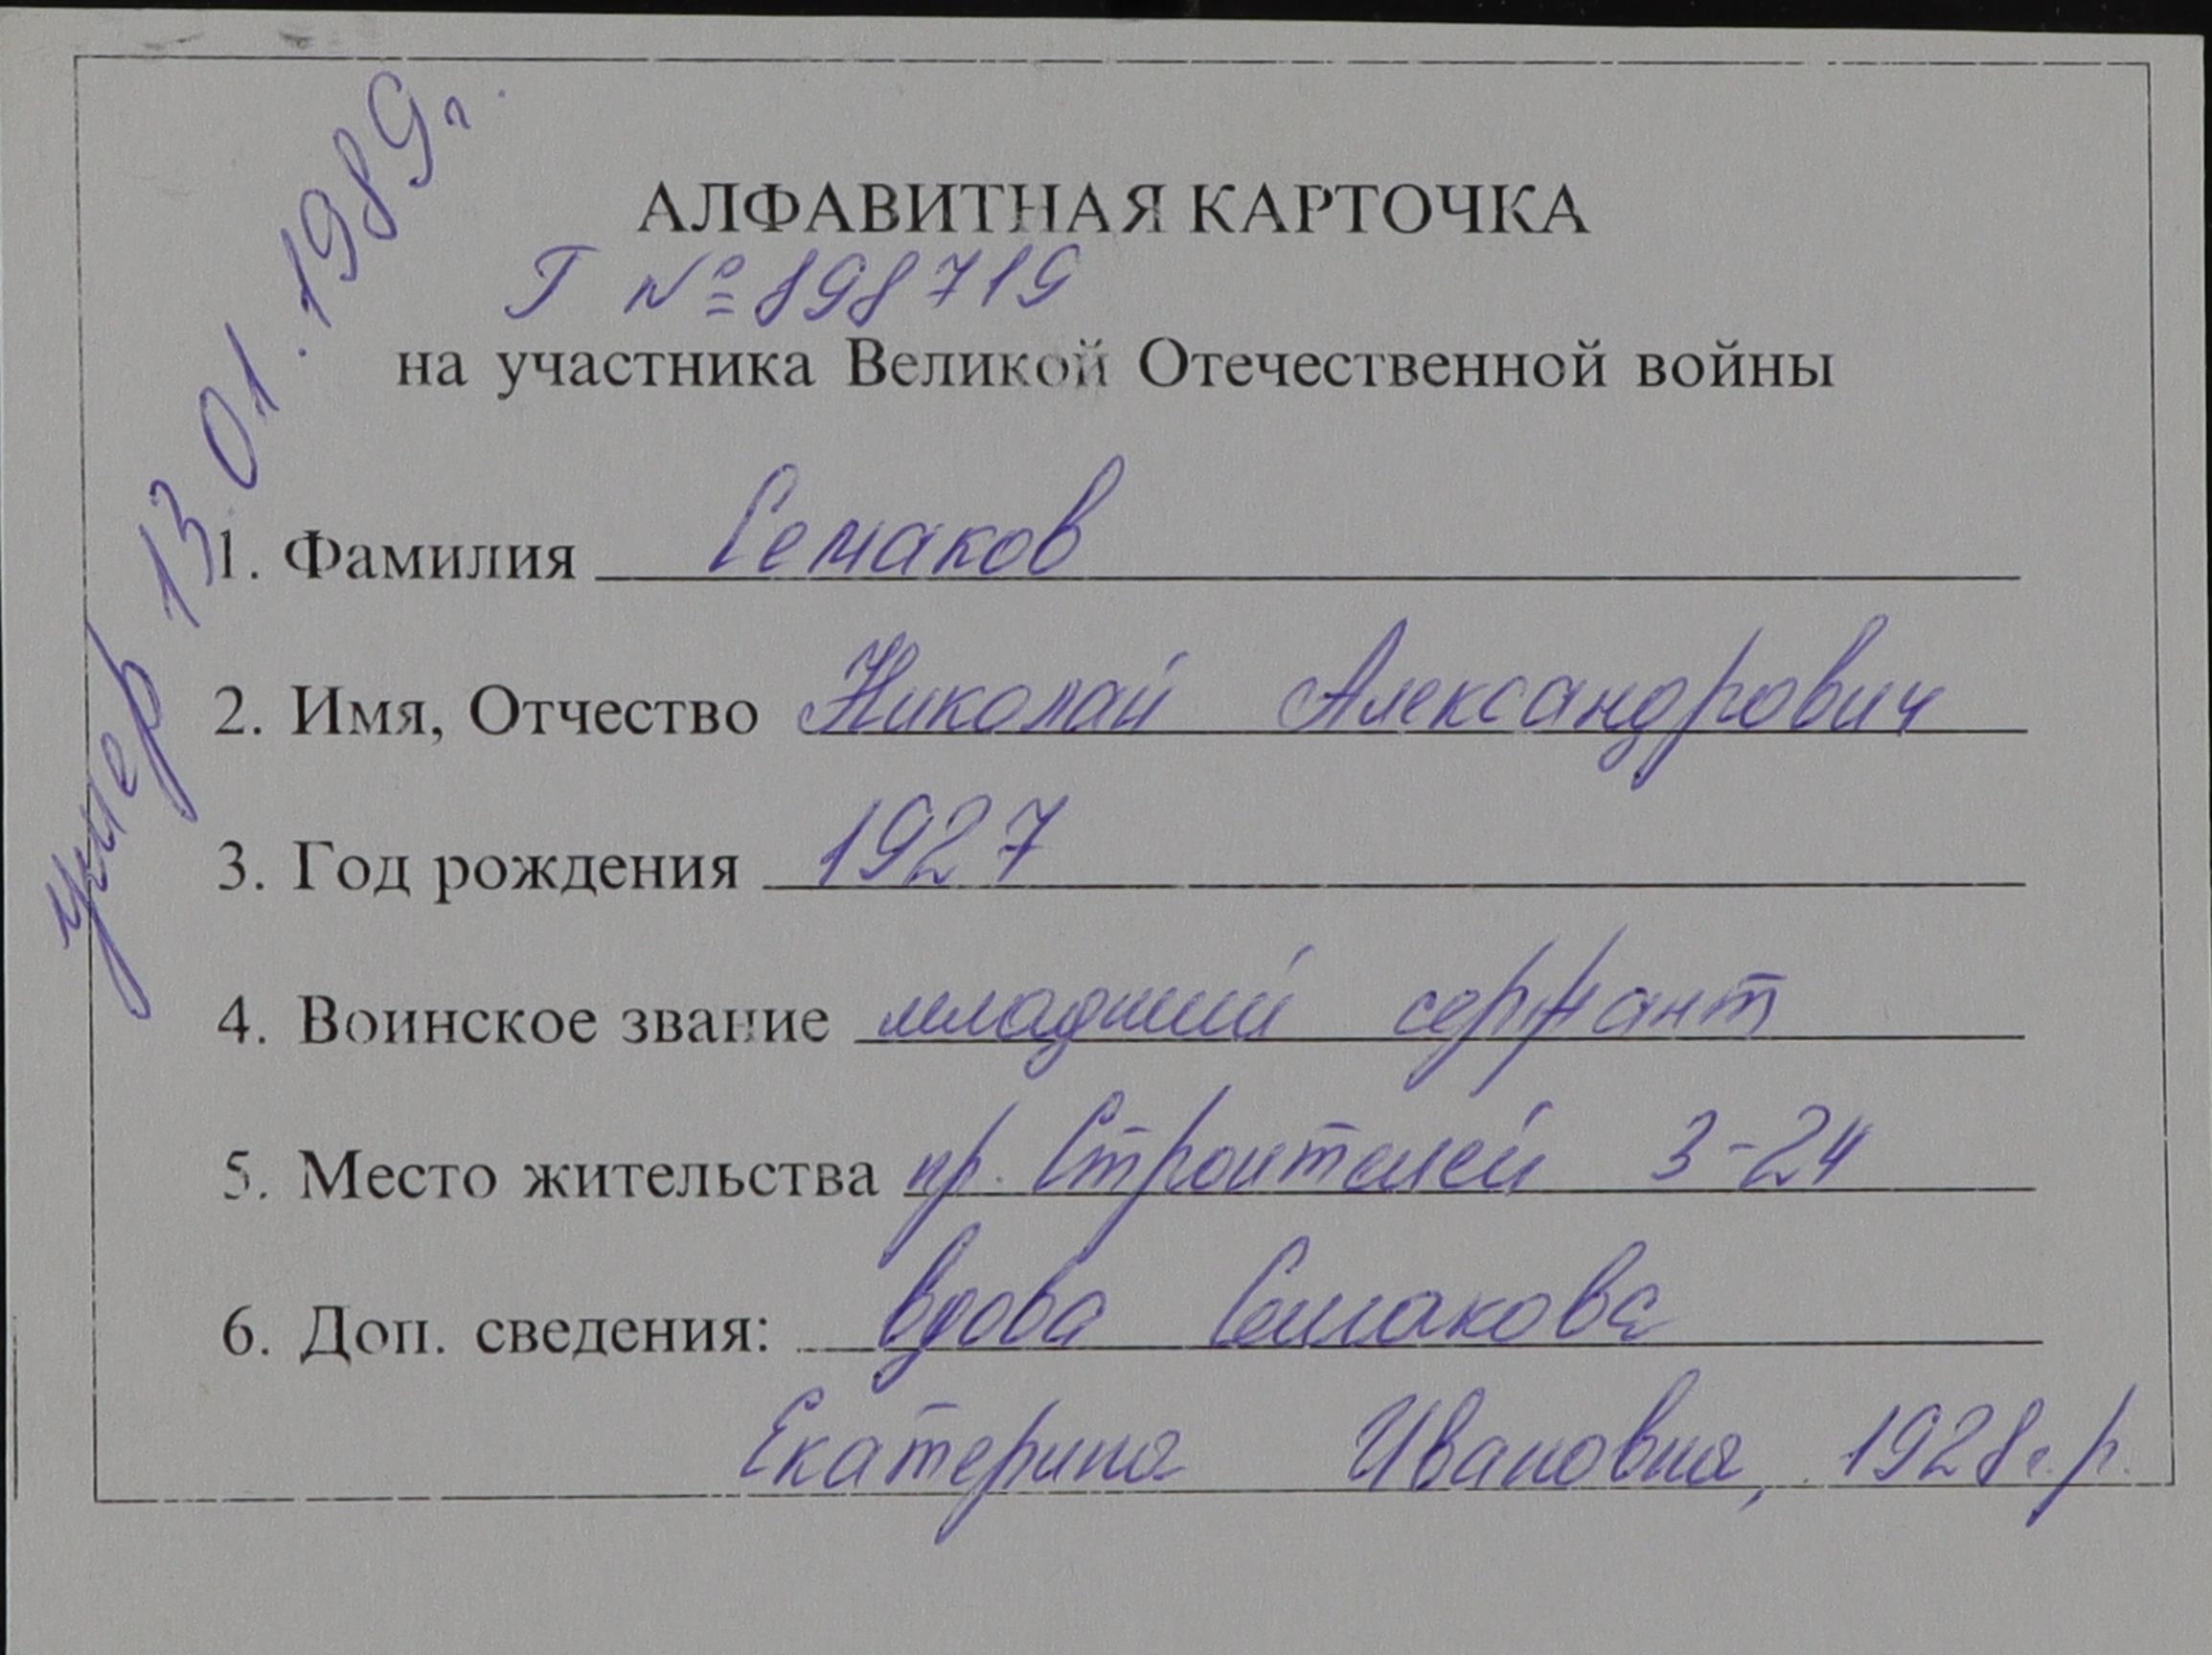 умер 13.01.1989г.
АЛФАВИТНАЯ КАРТОЧКА
Г №898719
на участника Великой Отечественной войны
1. Фамилия Семаков
2. Имя, Отчество Николай Александрович
3. Год рождения 1927
4. Воинское звание младший сержант
5. Место жительства пр. Строителей 3-24
6. Доп. сведения: вдова Семакова
Екатерина Ивановна, 1928г.р.